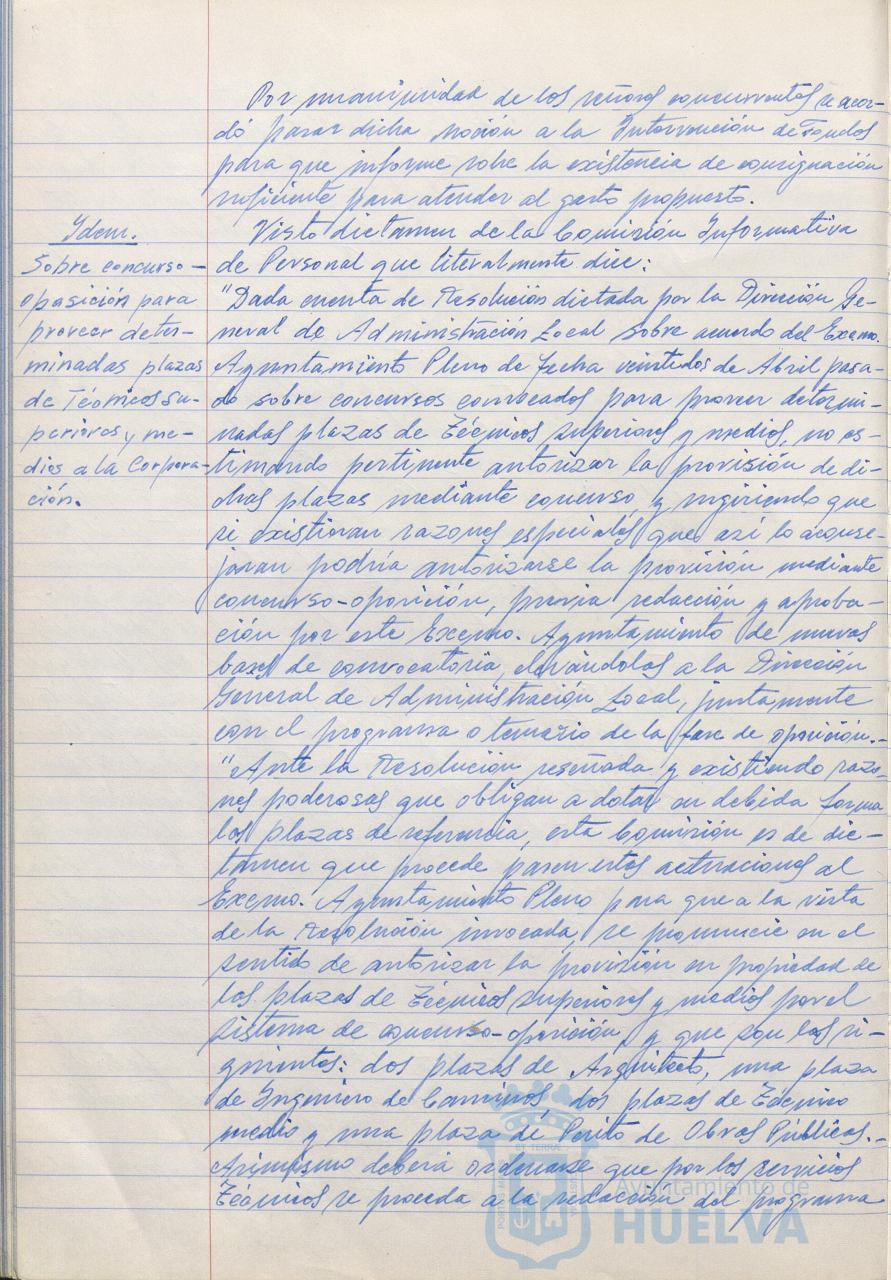 Por unanimidad de los señores concurrentes se acor-
dó pasar dicha moción a la Intervención de Fondos
para que informe sobre la existencia de consignación
suficiente para atender al gasto propuesto.
Ydem.
Sobre concurso-
oposición para
proveer deter-
minadas plazas
de Técnicos Su-
periores y me-
dios a la Corpora-
ción.
Visto dictamen de la Comisión Informativa
de Personal que literalmente dice:
"Dada cuenta de Resolución dictada por la Dirección Ge-
neral de Administración Local sobre acuerdo del Excmo.
Ayuntamiento Pleno de fecha veintidos de Abril pasa-
do sobre concursos convocados para proveer determi-
nadas plazas de Técnicos superiores y medios, no es-
timando pertinente autorizar la provisión de di-
chas plazas mediante concurso, y sugiriendo que
si existieran razones especiales que así lo aconse-
jaran podría autorizarse la provisión mediante
concurso-oposición, previa redacción y aproba-
ción por este Excmo. Ayuntamiento de nuevas
bases de convocatoria, elevándolas a la Dirección
General de Administración Local, juntamente
con el programa o temario de la fase de oposición.-
"Ante la Resolución reseñada y existiendo razo-
nes poderosas que obligan a dotar en debida forma
las plazas de referencia, esta Comisión es de dic-
tamen que procede pasen estas actuaciones al
Excmo. Ayuntamiento Pleno para que a la vista
de la Resolución invocada, se pronuncie en el
sentido de autorizar la provisión en propiedad de
las plazas de Técnicos superiores y medios por el
sistema de concurso-oposición, y que son las si-
guientes: dos plazas de Arquitecto, una plaza
de Ingeniero de Caminos, dos plazas de Técnico
medio y una plaza de Perito de Obras Públicas.-
Asimismo deberá ordenarse que por los Servicios
Técnicos se proceda a la redacción del programa
Ayuntamiento de
HUELVA